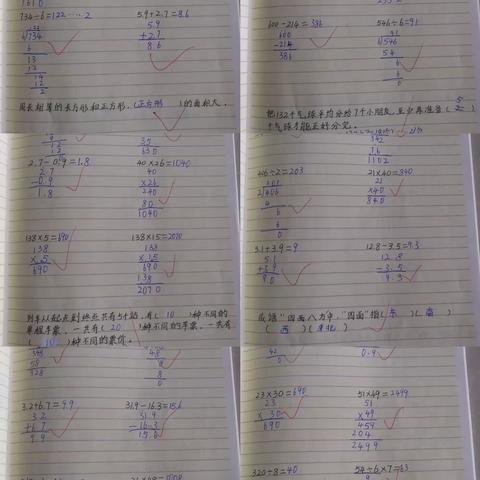 734÷6=122……2
5.9+2.7=8.6
5.9
+2.7
8.6
周长相等的长方形和正方形，(正方形)的面积大。
600-214=386
600
-214
386
546÷6=91
把132个气球平均分给7个小朋友，至少再准备(
)个气球才能正好分完。
2.7-0.9=1.8
2.7
-0.9
1.8
40×26=1040
40
×26
240
80
1040
138×5=690
138
×5
690
138×15=2070
138
×15
690
138
2070
列车从起点到终点共有5个站，有(10)种不同的
单程车票，一共有(20)种不同的车票，一共有
(10)种不同的票价。
406÷2=203
21×40=840
21
×40
840
5.1+3.9=9
5.1
+3.9
12.8-3.5=9.3
12.8
-3.5
9.3
成语"四面八方"中，"四面"指(东)(南)
(西)(北)
3.2+6.7=9.9
3.2
+6.7
9.9
31.9-16.3=15.6
31.9
-16.3
15.6
23×30=690
23
×30
690
51×49=2499
51
×49
459
204
2499
320÷8=40
54÷6×7=63